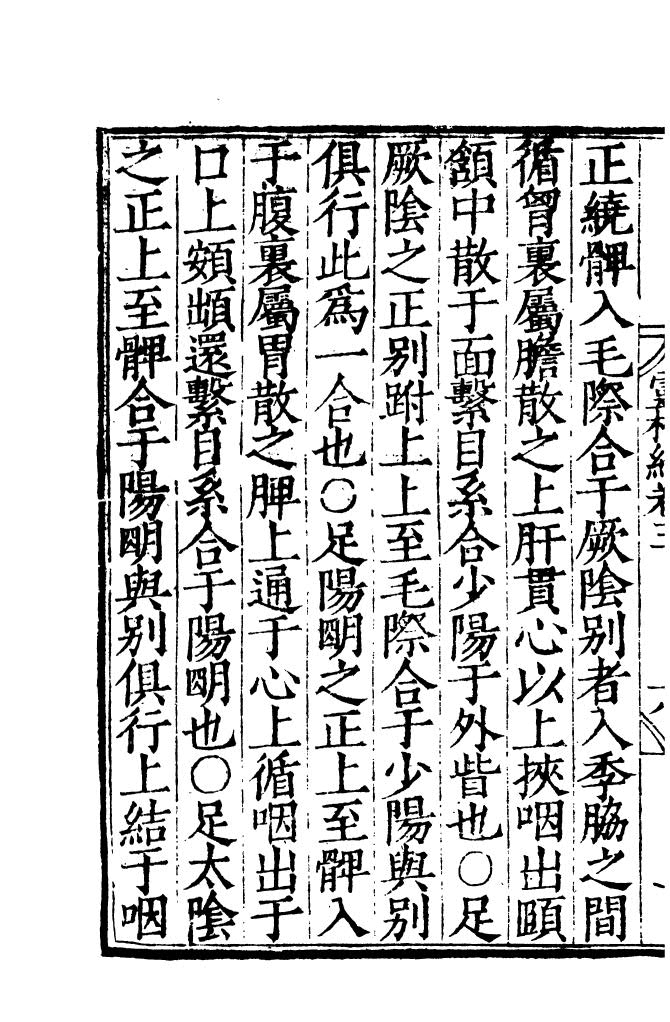 正繞髀入毛際合于厥陰别者入季脇之間
循胷裏屬膽散之上肝貫心以上挾咽出頤
頷中散于面繫目系合少陽于外眥也〇足
厥陰之正别跗上上至毛際合于少陽與别
俱行此爲一合也〇足陽明之正上至髀入
于腹裏屬胃散之脾上通于心上循咽出于
口上頞䪼還繫目系合于陽明也〇足太陰
之正上至髀合于陽明與别俱行上結于咽